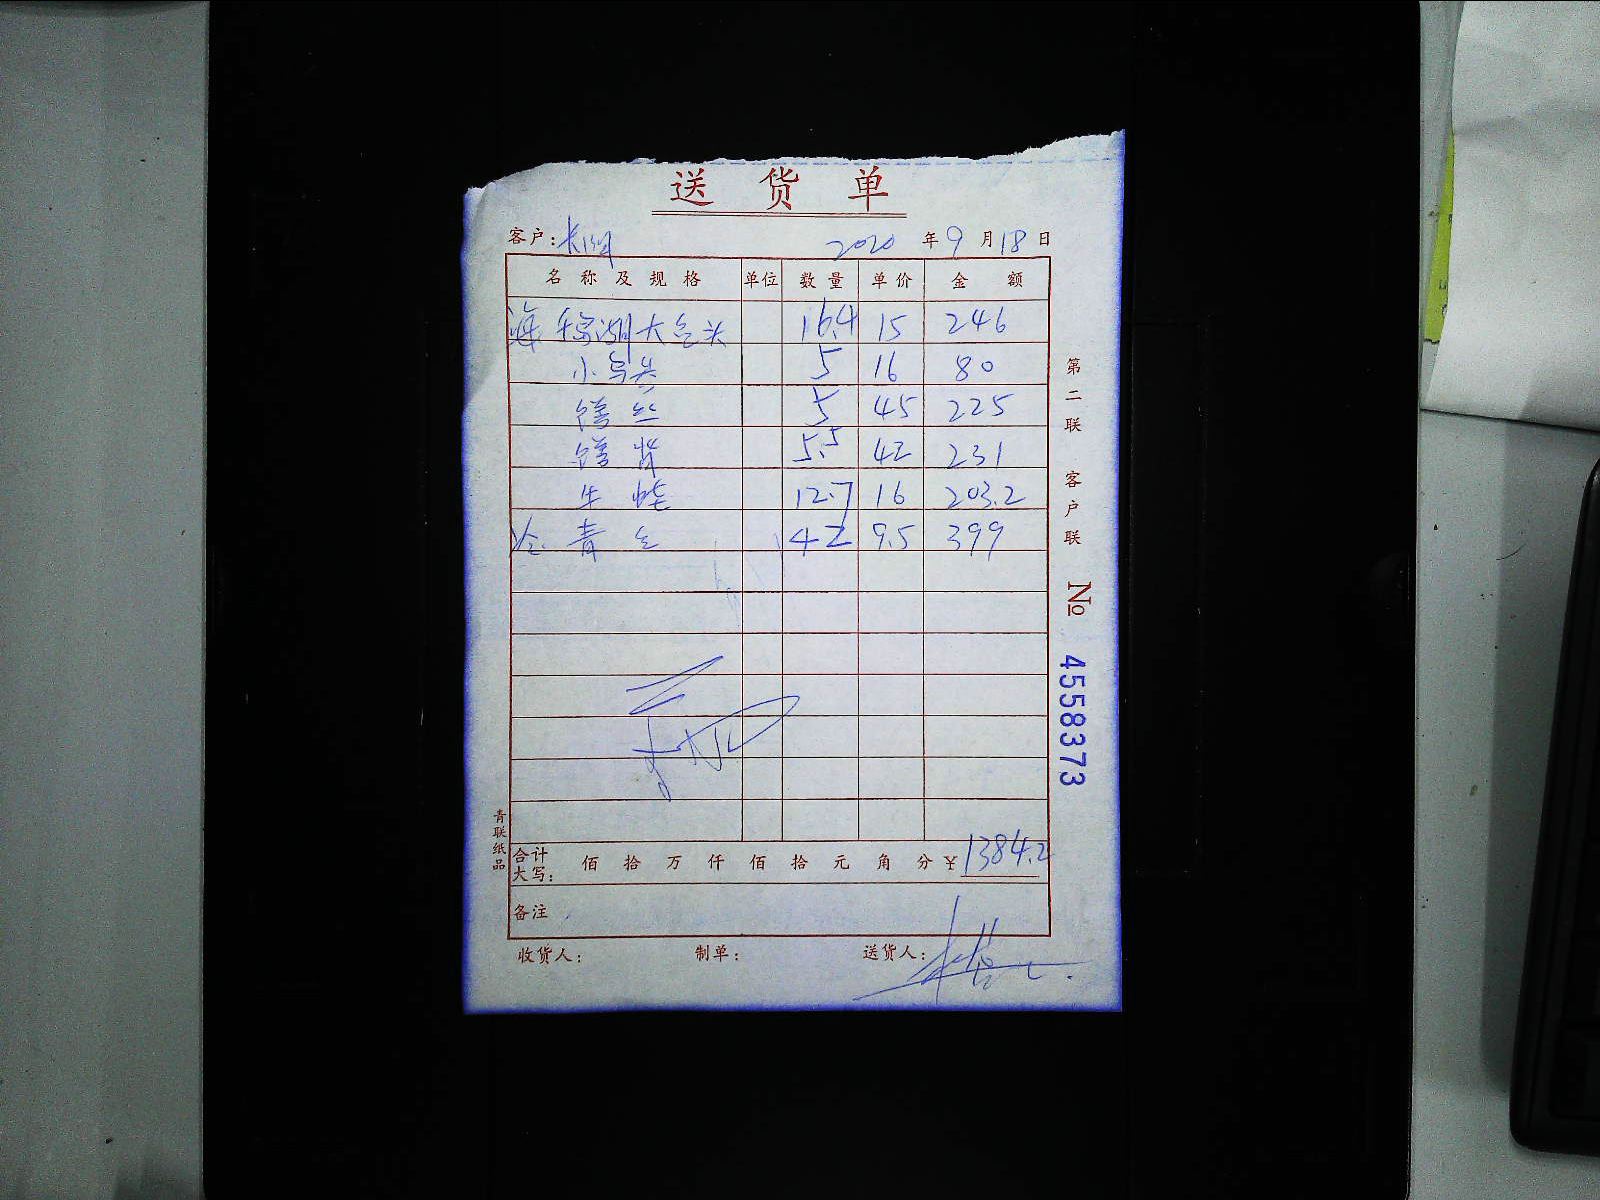 送货单
客户: 2020年9月18日
名称及规格 单位 数量 单价 金额
海 千岛湖大鱼头 16.4 15 246
小乌 5 16 80
鳝丝 5 45 225
鳝背 5.5 42 231
牛蛙 12.7 16 203.2
冷 青 42 9.5 399
合计大写: 佰拾万仟佰拾元角分 ¥1384.2
备注
收货人: 制单: 送货人:
第二联 客户联
No 4558373
青联纸品